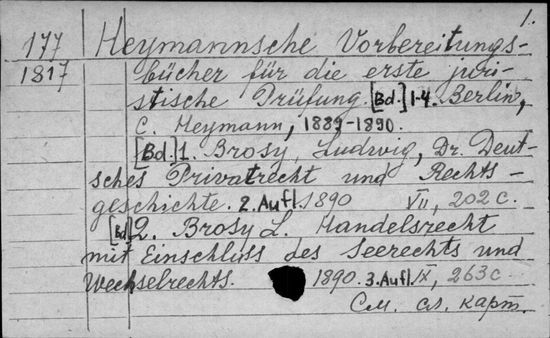 1.
177 Heymannsche Vorbereitungs-
1817 bücher für die erste juri-
stische Prüfung [Bd.] 1-4. Berlin,
C. Heymann, 1889-1890.
[Bd.] 1. Brosy, Ludwig, Dr. Deut-
sches Privatrecht und Rechts-
geschichte. 2. Aufl. 1890 VII, 202 с.
[Bd] 2. Brosy L. Handelsrecht
mit Einschluss des Seerechts und
Wechselrechts. 1890. 3. Aufl. IX, 263 с.
См. сл. карт.